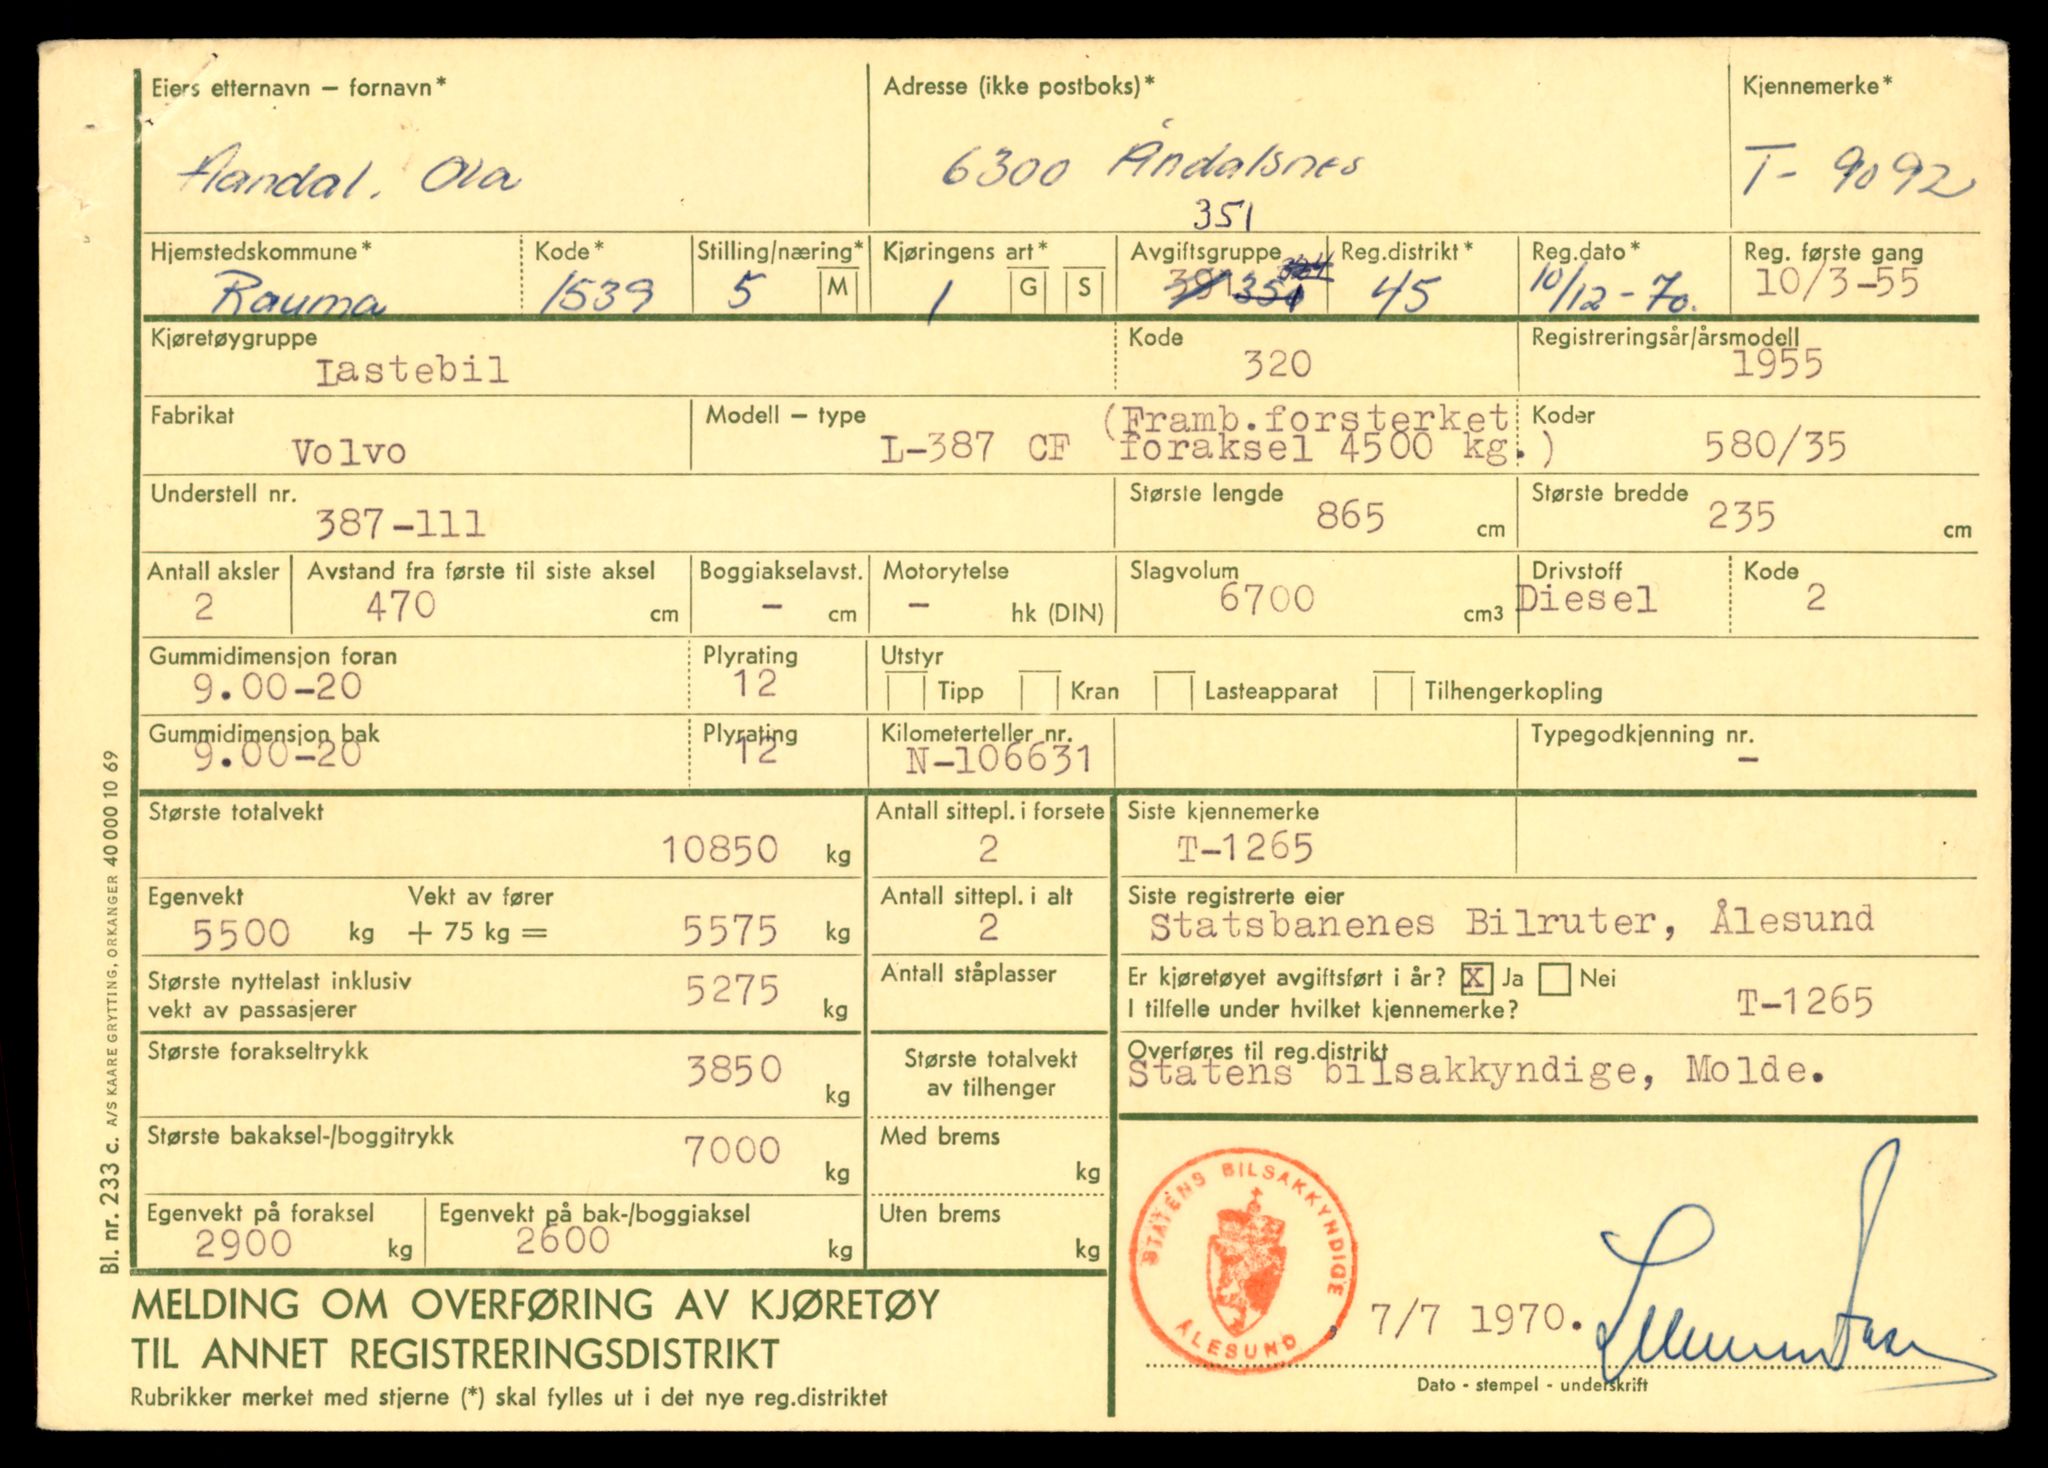 Eiers etternavn – fornavn*
Aandal, Ola
Adresse (ikke postboks)*
6300 Åndalsnes
Kjennemerke*
T- 9092
Hjemstedskommune*
Rauma
Kode*
1539
Stilling/næring*
5 M
Kjøringens art*
1 G S
351
Avgiftsgruppe
Reg.distrikt*
45
Reg.dato*
10/12-70.
Reg. første gang
10/3-55
Kjøretøygruppe
Lastebil
Kode
320
Registreringsår/årsmodell
1955
Fabrikat
Volvo
Modell – type
(Framb.forsterket
L-387 CF foraksel 4500 kg.)
Koder
580/35
Understell nr.
387-111
Største lengde
865 cm
Største bredde
235 cm
Antall aksler
2
Avstand fra første til siste aksel
470 cm
Boggiakselavst.
– cm
Motorytelse
– hk (DIN)
Slagvolum
6700 cm3
Drivstoff
Diesel
Kode
2
Gummidimensjon foran
9.00-20
Plyrating
12
Utstyr
Tipp Kran Lasteapparat Tilhengerkopling
Gummidimensjon bak
9.00-20
Plyrating
12
Kilometerteller nr.
N-106631
Typegodkjenning nr.
–
Største totalvekt
10850 kg
Antall sittepl. i forsete
2
Siste kjennemerke
T-1265
Egenvekt
5500 kg
Vekt av fører
+ 75 kg = 5575 kg
Antall sittepl. i alt
2
Siste registrerte eier
Statsbanenes Bilruter, Ålesund
Største nyttelast inklusiv
vekt av passasjerer
5275 kg
Antall ståplasser
Er kjøretøyet avgiftsført i år? X Ja Nei
I tilfelle under hvilket kjennemerke?
T-1265
Største forakseltrykk
3850 kg
Største totalvekt
av tilhenger
Overføres til reg.distrikt
Statens bilsakkyndige, Molde.
Største bakaksel-/boggitrykk
7000 kg
Med brems
kg
Egenvekt på foraksel
2900 kg
Egenvekt på bak-/boggiaksel
2600 kg
Uten brems
kg
STATENS BILSAKKYNDIGE
ÅLESUND
, 7/7 1970.
Dato - stempel - underskrift
MELDING OM OVERFØRING AV KJØRETØY
TIL ANNET REGISTRERINGSDISTRIKT
Rubrikker merket med stjerne (*) skal fylles ut i det nye reg.distriktet
Bl. nr. 233 c. A/S KAARE GRYTTING, ORKANGER 40 000 10 69